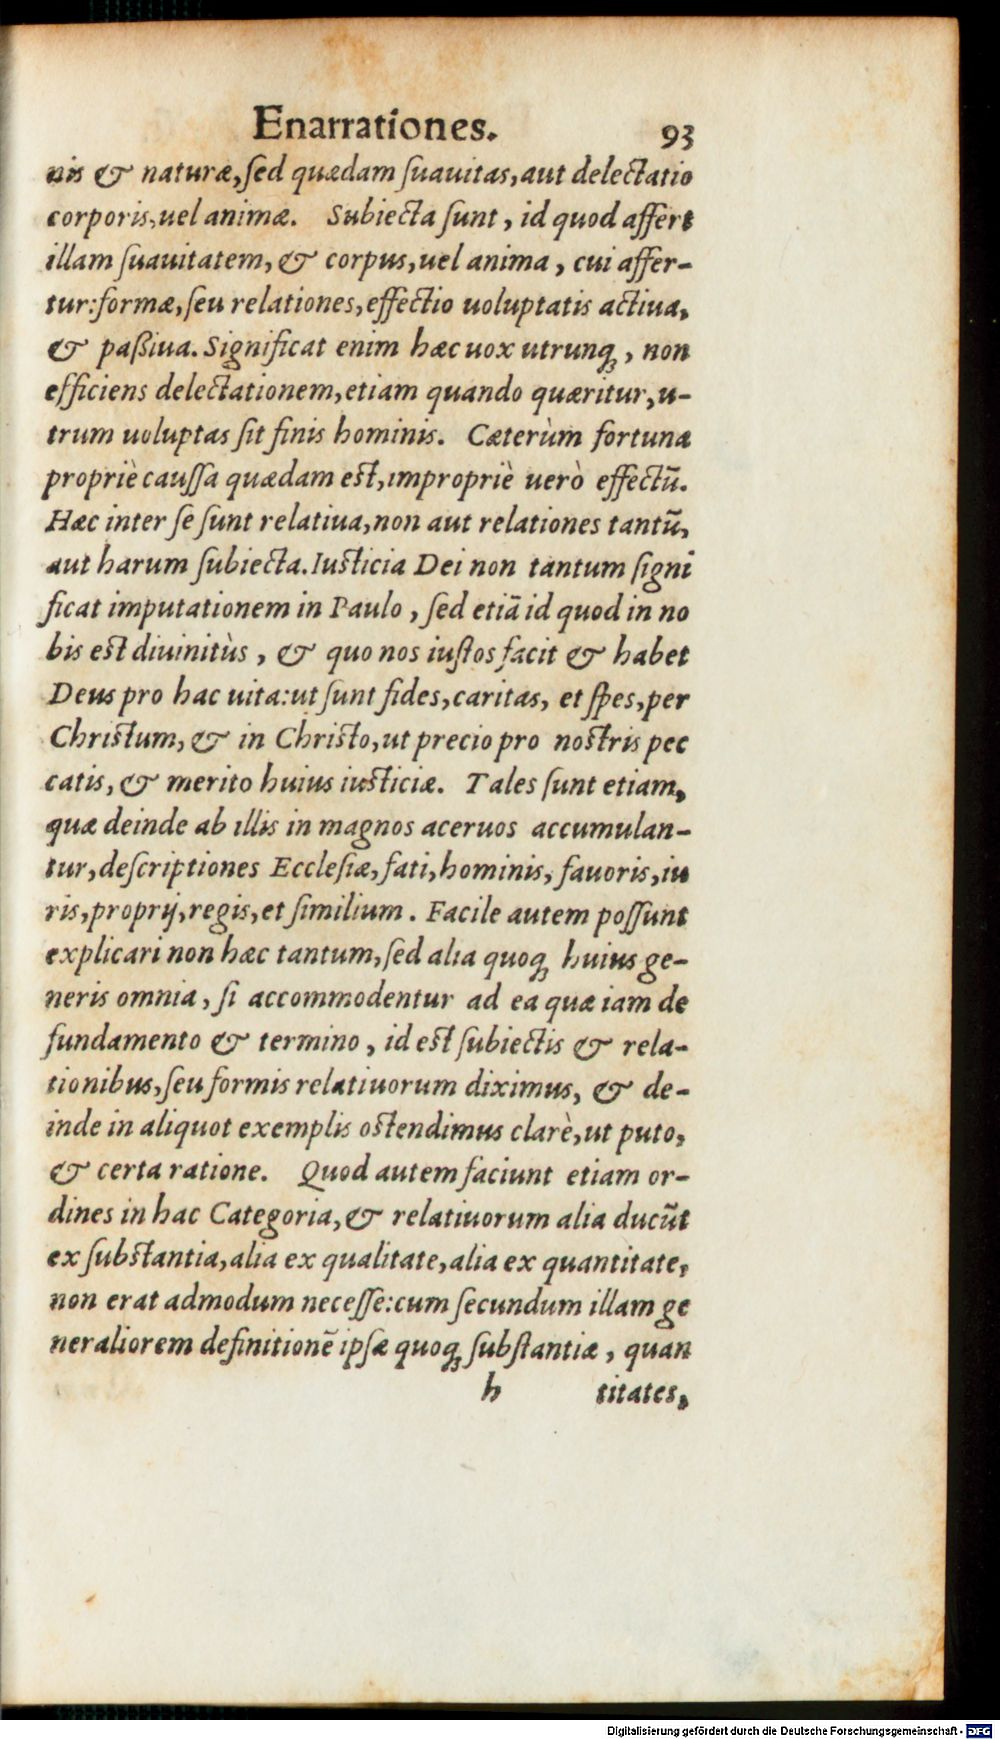 Enarrationes. 93
nis & naturæ, sed quædam suauitas, aut delectatio
corporis, uel animæ. Subiecta sunt, id quod affert
illam suauitatem, & corpus, uel anima, cui affer-
tur: formæ, seu relationes, effectio uoluptatis actiua,
& paßiua. Significat enim hæc uox utrunq;, non
efficiens delectationem, etiam quando quæritur, u-
trum uoluptas sit finis hominis. Cæterùm fortuna
propriè caussa quædam est, impropriè uerò effectū.
Hæc inter se sunt relatiua, non aut relationes tantū,
aut harum subiecta. Iusticia Dei non tantum signi
ficat imputationem in Paulo, sed etiā id quod in no
bis est diuinitùs, & quo nos iustos facit & habet
Deus pro hac uita: ut sunt fides, caritas, et spes, per
Christum, & in Christo, ut precio pro nostris pec
catis, & merito huius iusticiæ. Tales sunt etiam,
quæ deinde ab illis in magnos aceruos accumulan-
tur, descriptiones Ecclesiæ, fati, hominis, fauoris, iu
ris, proprij, regis, et similium. Facile autem possunt
explicari non hæc tantum, sed alia quoq; huius ge-
neris omnia, si accommodentur ad ea quæ iam de
fundamento & termino, id est subiectis & rela-
tionibus, seu formis relatiuorum diximus, & de-
inde in aliquot exemplis ostendimus clarè, ut puto,
& certa ratione. Quod autem faciunt etiam or-
dines in hac Categoria, & relatiuorum alia ducūt
ex substantia, alia ex qualitate, alia ex quantitate,
non erat admodum necesse: cum secundum illam ge
neraliorem definitionē ipsæ quoq; substantiæ, quan
h titates,
Digitalisierung gefördert durch die Deutsche Forschungsgemeinschaft - DFG